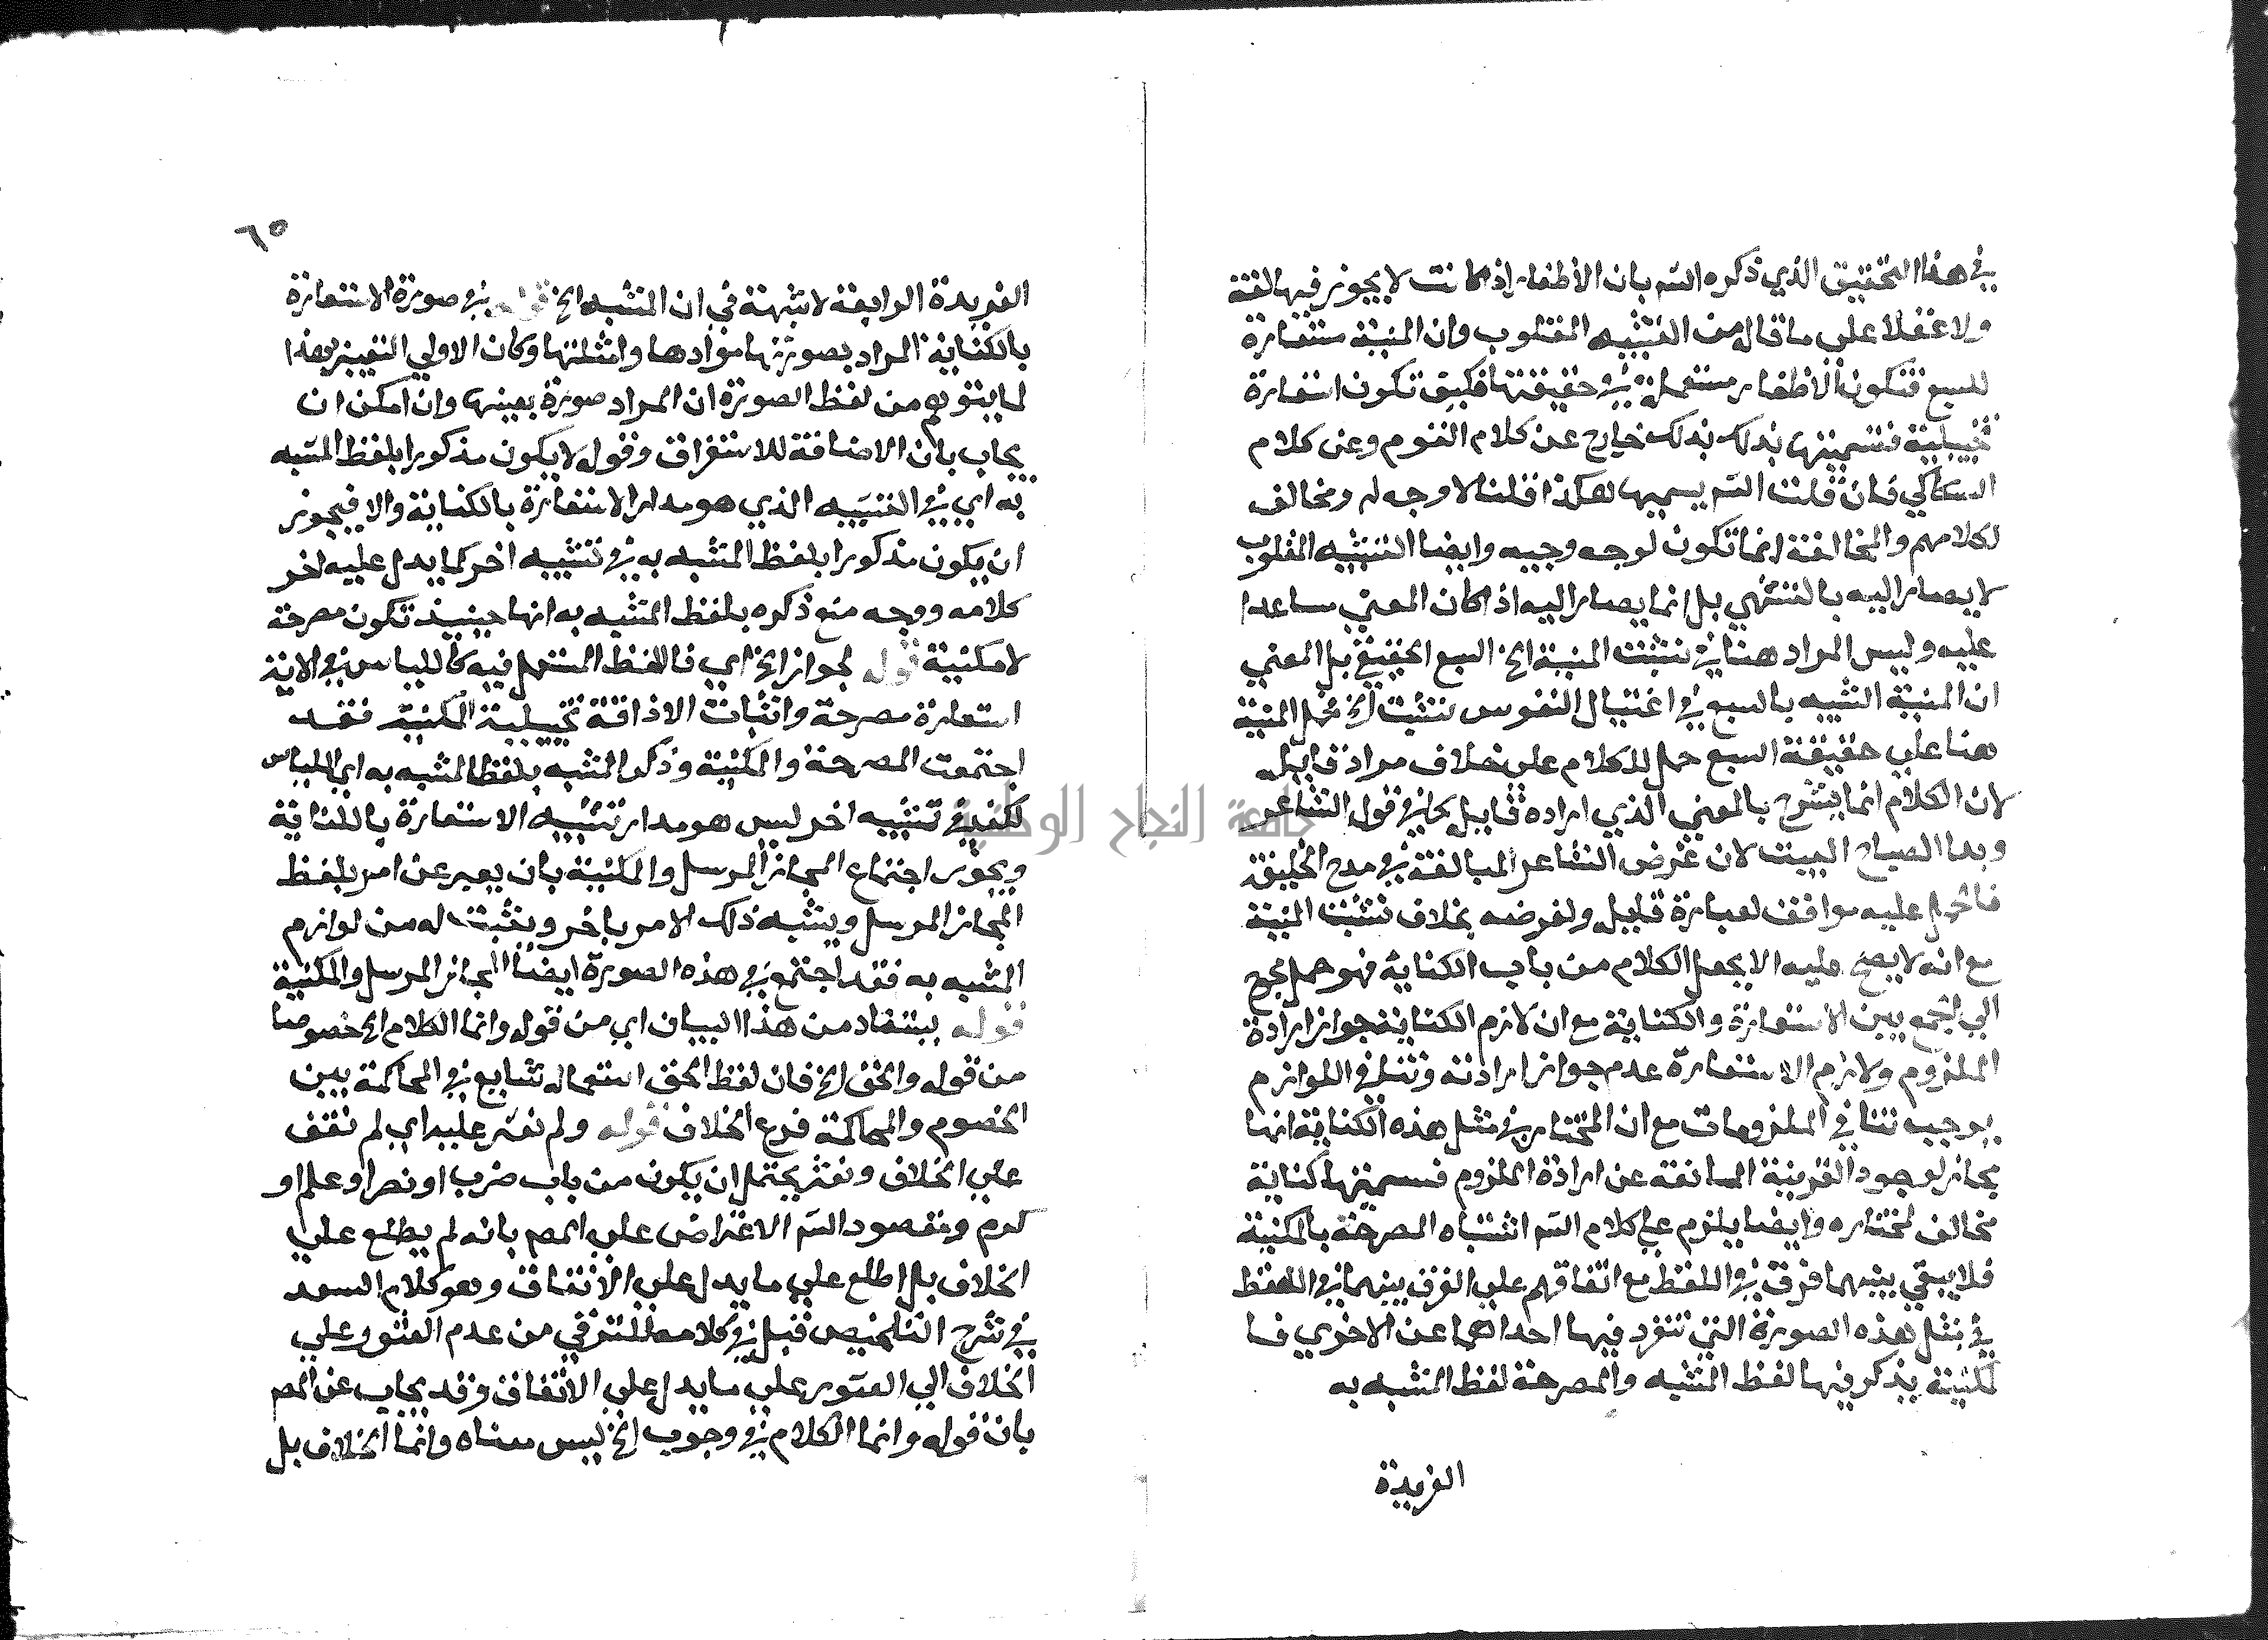 في هذا التحقيق الذي ذكره الشم بان الأظفار اذا كانت لا يجوز فيها
ولا عقلا علي ما قاله من التشبيه المقلوب وان المنية مستعارة
للسبع فتكون الاظفار مستعملة في حقيقتها فكيف تكون استعارة
تخييلية فتسميتها بذلك بذلك خارج عن كلام القوم وعن كلام
السكاكي فان قلت الشم يسميها هكذا قلنا لا وجه له ومخالف
لكلامهم والمخالفة انما تكون لوجه وجيه وايضا التشبيه المقلوب
لا يصار اليه بالتشهي بل انما يصار اليه اذا كان المعني مساعدا
عليه وليس المراد هنا في نشبت المنية الخ السبع الحقيقي بل المعني
ان المنية الشبيه بالسبع في اغتيال النفوس نشبت الخ فحمل المنية
هنا علي حقيقة السبع حمل للكلام علي خلاف مراد قايله
لان الكلام انما يشرح بالمعني الذي اراده قايله كما في قول الشاعر
وبدا الصباح البيت لان غرض الشاعر المبالغة في مدح الخليفة
فالحمل عليه موافق لعبارة قايله ولغرضه بخلاف نشبت المنية
مع انه لا يصح عليه الا بجعل الكلام من باب الكناية فهو حمل محوج
الي الجمع بين الاستعارة والكناية مع ان لازم الكناية جواز ارادة
الملزوم ولازم الاستعارة عدم جواز ارادته وتنافي اللوازم
يوجب تنافي الملزومات مع ان المختار في مثل هذه الكناية انها
مجاز لوجود القرينة المانعة عن ارادة الملزوم فسميتها كناية
مخالف لمختاره وايضا يلزم علي كلام الشم اشتباه المصرحة بالمكنية
فلا يبقي بينهما فرق في اللفظ مع اتفاقهم علي الفرق بينهما في اللفظ
في مثل هذه الصورة التي تنفرد فيها احداهما عن الاخري فا
لمكنية يذكر فيها لفظ المشبه والمصرحة لفظ المشبه به
الفريدة
٦٥
الفريدة الرابعة لا شبهة في ان المشبه الخ قوله في صورة الاستعارة
بالكناية المراد بصورتها موادها وامثلتها وكان الاولي التعبير بهذا
لما يتوهم من لفظ الصورة ان المراد صورة بعينها وان امكن ان
يجاب بان الاضافة للاستغراق وقوله لا يكون مذكورا بلفظ المشبه
به اي في التشبيه الذي هو مدار الاستعارة بالكناية والا فيجوز
ان يكون مذكورا بلفظ المشبه به في تشبيه اخر كما يدل عليه اخر
كلامه ووجه منع ذكره بلفظ المشبه به انها حينيذ تكون مصرحة
لا مكنية قوله لجواز الخ اي فاللفظ المستعمل فيه كاللباس في الاية
استعارة مصرحة واثبات الاذاقة تخييلية المكنية فقد
اجتمعت المصرحة والمكنية وذكر المشبه بلفظ المشبه به اي اللباس
لكنه في تشبيه اخر ليس هو مدار تشبيه الاستعارة بالكناية
ويجوز اجتماع المجاز المرسل والمكنية بان يعبر عن امر بلفظ
المجاز المرسل ويشبه ذلك الامر باخر ويثبت له من لوازم
المشبه به فقد اجتمع في هذه الصورة ايضا المجاز المرسل والمكنية
قوله يستفاد من هذا البيان اي من قوله وانما الكلام الخ خصوصا
من قوله والحق الخ فان لفظ الحق استعماله شايع في المحاكمة بين
الخصوم والمحاكمة فرع الخلاف قوله ولم نعثر عليه اي لم نقف
علي الخلاف ونعثر يحتمل ان يكون من باب ضرب او نصر او علم او
كرم ومقصود الشم الاعتراض علي المصم بانه لم يطلع علي
الخلاف بل اطلع علي ما يدل علي الاتفاق وهو كلام السعد
في شرح التلخيص قبل في كلامه للترقي من عدم العثور علي
الخلاف الي العثور علي ما يدل علي الاتفاق وقد يجاب عن المصم
بان قوله وانما الكلام في وجوب الخ ليس معناه وانما الخلاف بل
جامعة النجاح الوطنية